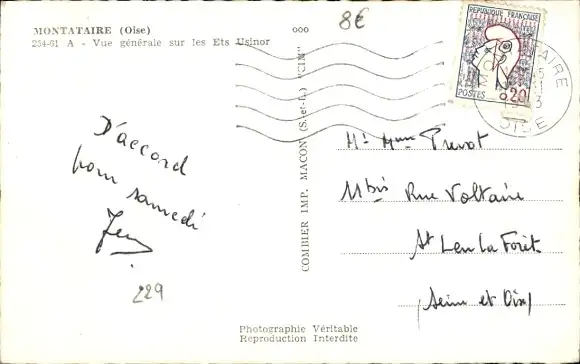 MONTATAIRE (Oise)
254-61 A - Vue générale sur les Ets Usinor
ooo
8€
REPUBLIQUE FRANÇAISE
POSTES 0,20
OISE
D'accord
pour samedi
229
COMBIER IMP. MACON (S.-et-L.) "CIM"
Mr Mme Prevot
11 bis Rue Voltaire
St Leu La Forêt
(Seine et Oise)
Photographie Véritable
Reproduction Interdite